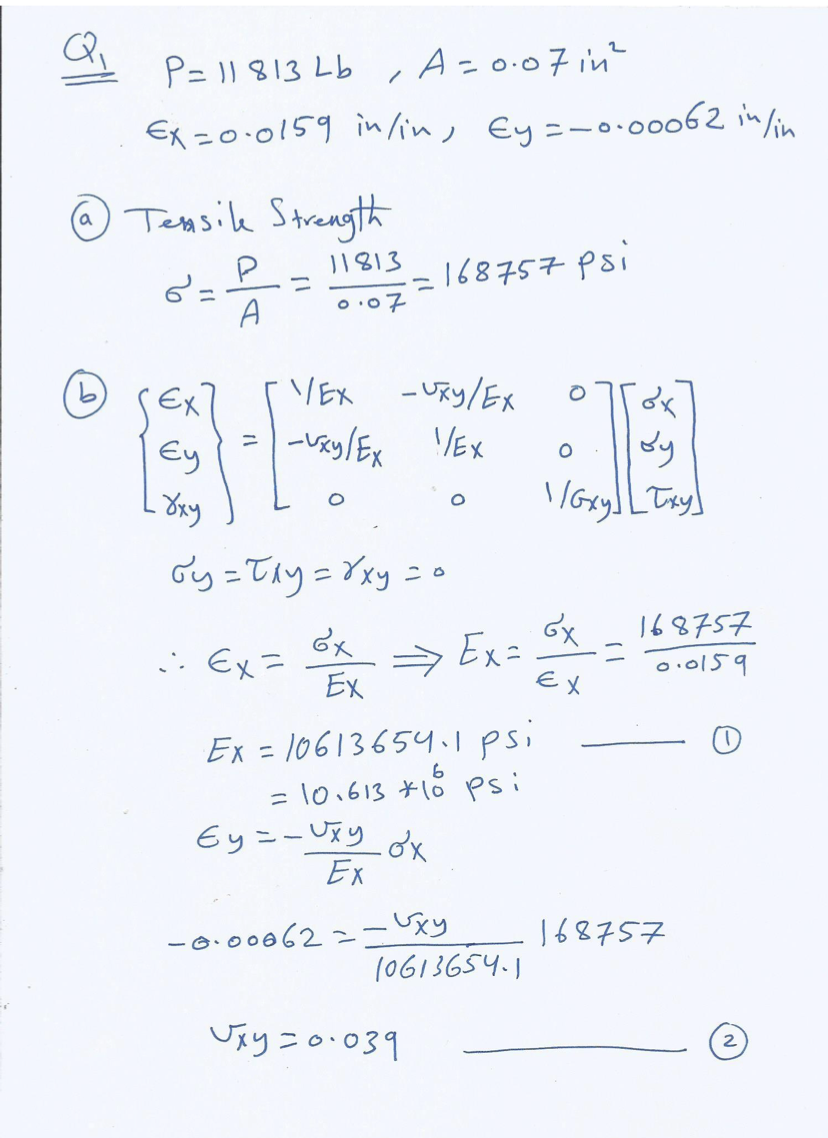 Q1 P = 11813 Lb , A = 0.07 in²
Ex = 0.0159 in/in, Ey = -0.00062 in/in
(a) Tensile Strength
σ = P/A = 11813/0.07 = 168757 psi
(b) {ϵx ϵy γxy} = [1/Ex -υxy/Ex 0
-υxy/Ex 1/Ex 0
0 0 1/Gxy] [σx σy τxy]
σy = τxy = γxy = 0
∴ ϵx = σx/Ex ⇒ Ex = σx/ϵx = 168757/0.0159
Ex = 10613654.1 psi ——— (1)
= 10.613 *10⁶ psi
ϵy = -υxy/Ex σx
-0.00062 = -υxy/10613654.1 168757
υxy = 0.039 ——— (2)